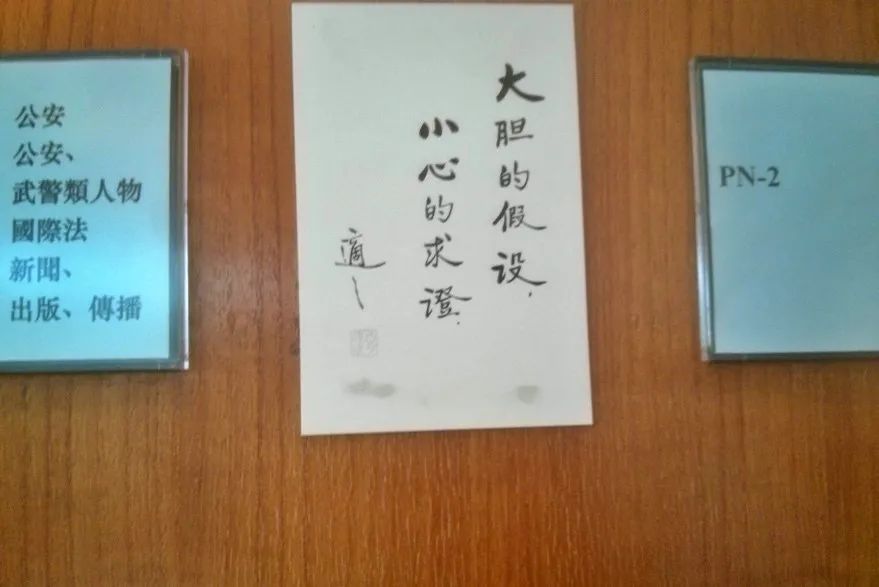 公安
公安、
武警類人物
國際法
新聞、
出版、傳播
大胆的假设，
小心的求證。
適之
PN-2